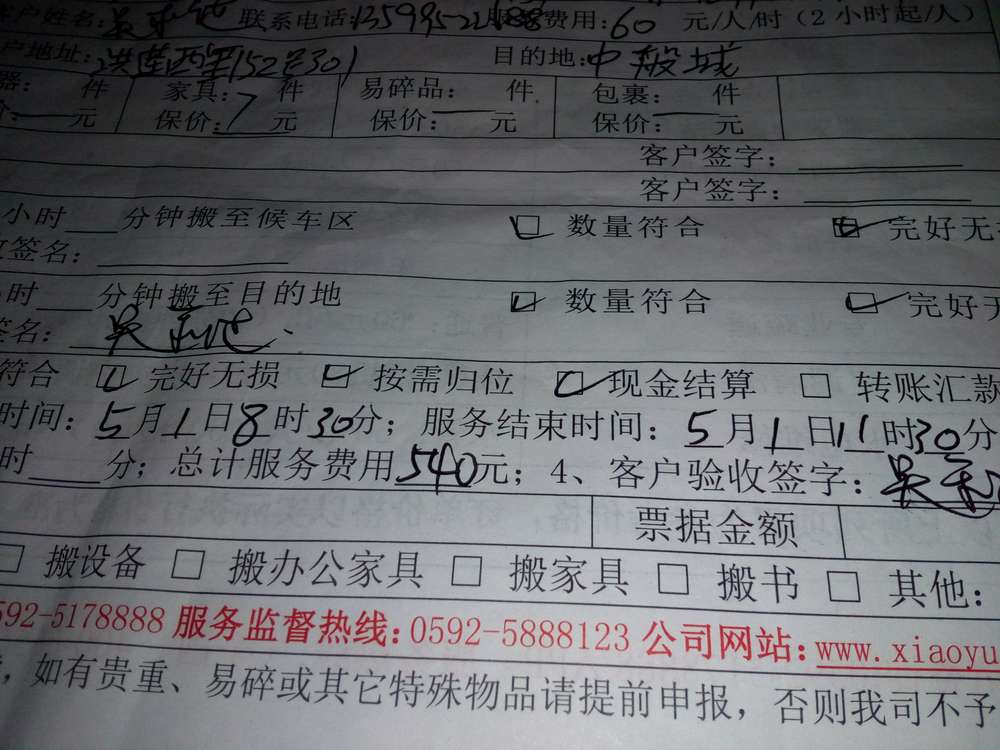 客户姓名: 吴 联系电话: 服务费用:60 元/人/时(2小时起/人)
户地址:洪莲西里152号301 目的地:中般城
器: 件 家具: 件 易碎品: 件 包裹: 件
价: 元 保价:7 元 保价: 元 保价: 元
客户签字:
客户签字:
小时 分钟搬至候车区 ☑ 数量符合 ☑ 完好无
签名:
时 分钟搬至目的地 ☑ 数量符合 ☑ 完好无
签名: 吴
符合 ☑ 完好无损 ☑ 按需归位 ☑ 现金结算 □ 转账汇款
时间:5月1日8时30分;服务结束时间:5月1日11时30分
时 分;总计服务费用540元;4、客户验收签字:吴
票据金额
□ 搬设备 □ 搬办公家具 □ 搬家具 □ 搬书 □ 其他:
592-5178888 服务监督热线:0592-5888123 公司网站:www.xiaoyu
,如有贵重、易碎或其它特殊物品请提前申报,否则我司不予